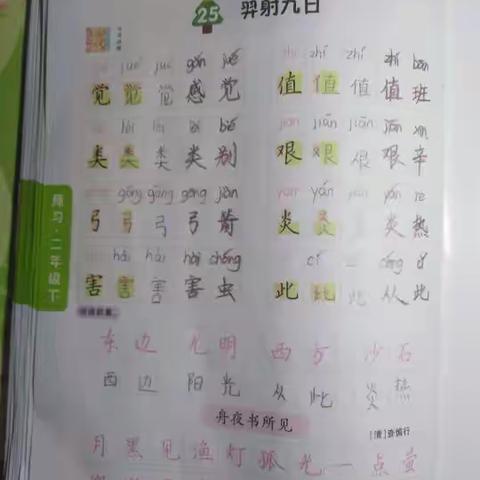 25 羿射九日
jué jué gǎn jué zhí zhí zhí bān
觉 觉 觉 感 觉 值 值 值 值 班
lèi lèi lèi bié jiān jiān jiān jiān xīn
类 类 类 类 别 艰 艰 艰 艰 辛
gōng gōng gōng jiàn yán yán yán yán rè
弓 弓 弓 弓 箭 炎 炎 炎 热
hài hài hài chóng cǐ cóng cǐ
害 害 害 害 虫 此 此 此 从 此
预习·二年级下
东边 光明 西方 沙石
西边 阳光 从此 炎热
舟夜书所见
[清]查慎行
月黑见渔灯 孤光一点萤